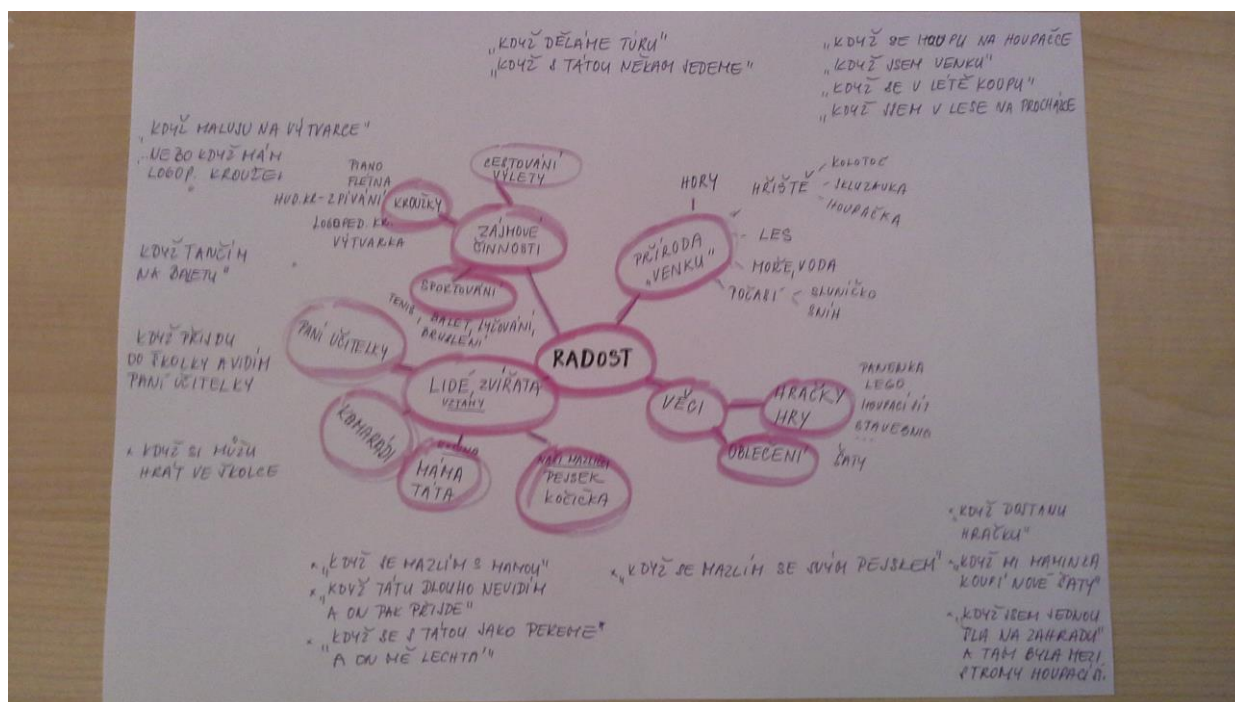 „KDYŽ DĚLÁME TÚRU"
„KDYŽ S TÁTOU NĚKAM JEDEME"
„KDYŽ SE HOUPU NA HOUPAČCE
„KDYŽ JSEM VENKU"
„KDYŽ SE V LÉTĚ KOUPU"
„KDYŽ JSEM V LESE NA PROCHÁZCE
„KDYŽ MALUJU NA VÝTVARCE"
NEBO KDYŽ MÁM
LOGOP. KROUŽEK
KDYŽ TANČÍM
NA BALETU"
KDYŽ PŘIJDU
DO ŠKOLKY A VIDÍM
PANÍ UČITELKY
KDYŽ SI MŮŽU
HRÁT VE ŠKOLCE
PIANO
FLÉTNA
HUD. KR - ZPÍVÁNÍ
LOGOPED. KR.
VÝTVARKA
KROUŽKY
CESTOVÁNÍ
VÝLETY
ZÁJMOVÉ
ČINNOSTI
SPORTOVÁNÍ
TENIS, BALET, LYŽOVÁNÍ,
BRUSLENÍ
HORY
HŘIŠTĚ
KOLOTOČ
- SKLUZAVKA
HOUPAČKA
PŘÍRODA
„VENKU"
LES
MOŘE, VODA
POČASÍ
SLUNÍČKO
SNÍH
RADOST
PANÍ UČITELKY
LIDÉ, ZVÍŘATA
VZTAHY
KAMARÁDI
RODINA
MÁMA
TÁTA
NAŠI MAZLÍČCI
PEJSEK
KOČIČKA
VĚCI
HRAČKY
HRY
PANENKA
LEGO
HOUPACÍ SÍŤ
STAVEBNIC
OBLEČENÍ
ŠATY
„KDYŽ SE MAZLÍM S MAMOU"
„KDYŽ TÁTU DLOUHO NEVIDÍM
A ON PAK PŘIJDE"
„KDYŽ SE S TÁTOU JAKO PEREME"
A ON MĚ LECHTÁ"
„KDYŽ SE MAZLÍM SE SVÝM PEJSKEM"
„KDYŽ DOSTANU
HRAČKU"
„KDYŽ MI MAMINKA
KOUPÍ NOVÉ ŠATY"
„KDYŽ JSEM JEDNOU
ŠLA NA ZAHRADU"
A TAM BYLA MEZI
STROMY HOUPACÍ S.